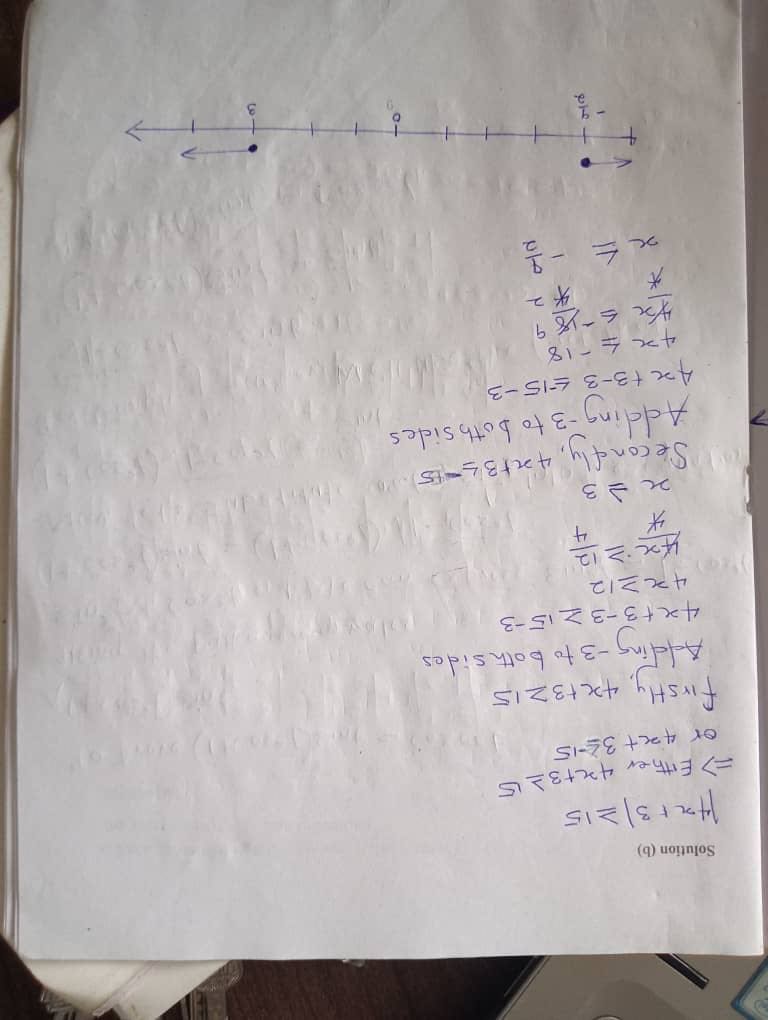 Solution (b)
|4x+3| ≥ 15
=> Either 4x+3 ≥ 15
or 4x+3 ≤ -15
firstly, 4x+3 ≥ 15
Adding -3 to both sides
4x+3-3 ≥ 15-3
4x ≥ 12
4x/4 ≥ 12/4
x ≥ 3
Secondly, 4x+3 ≤ -15
Adding -3 to both sides
4x+3-3 ≤ -15-3
4x ≤ -18
4x/4 ≤ -18/4 9/2
x ≤ -9/2
-9/2 0 3